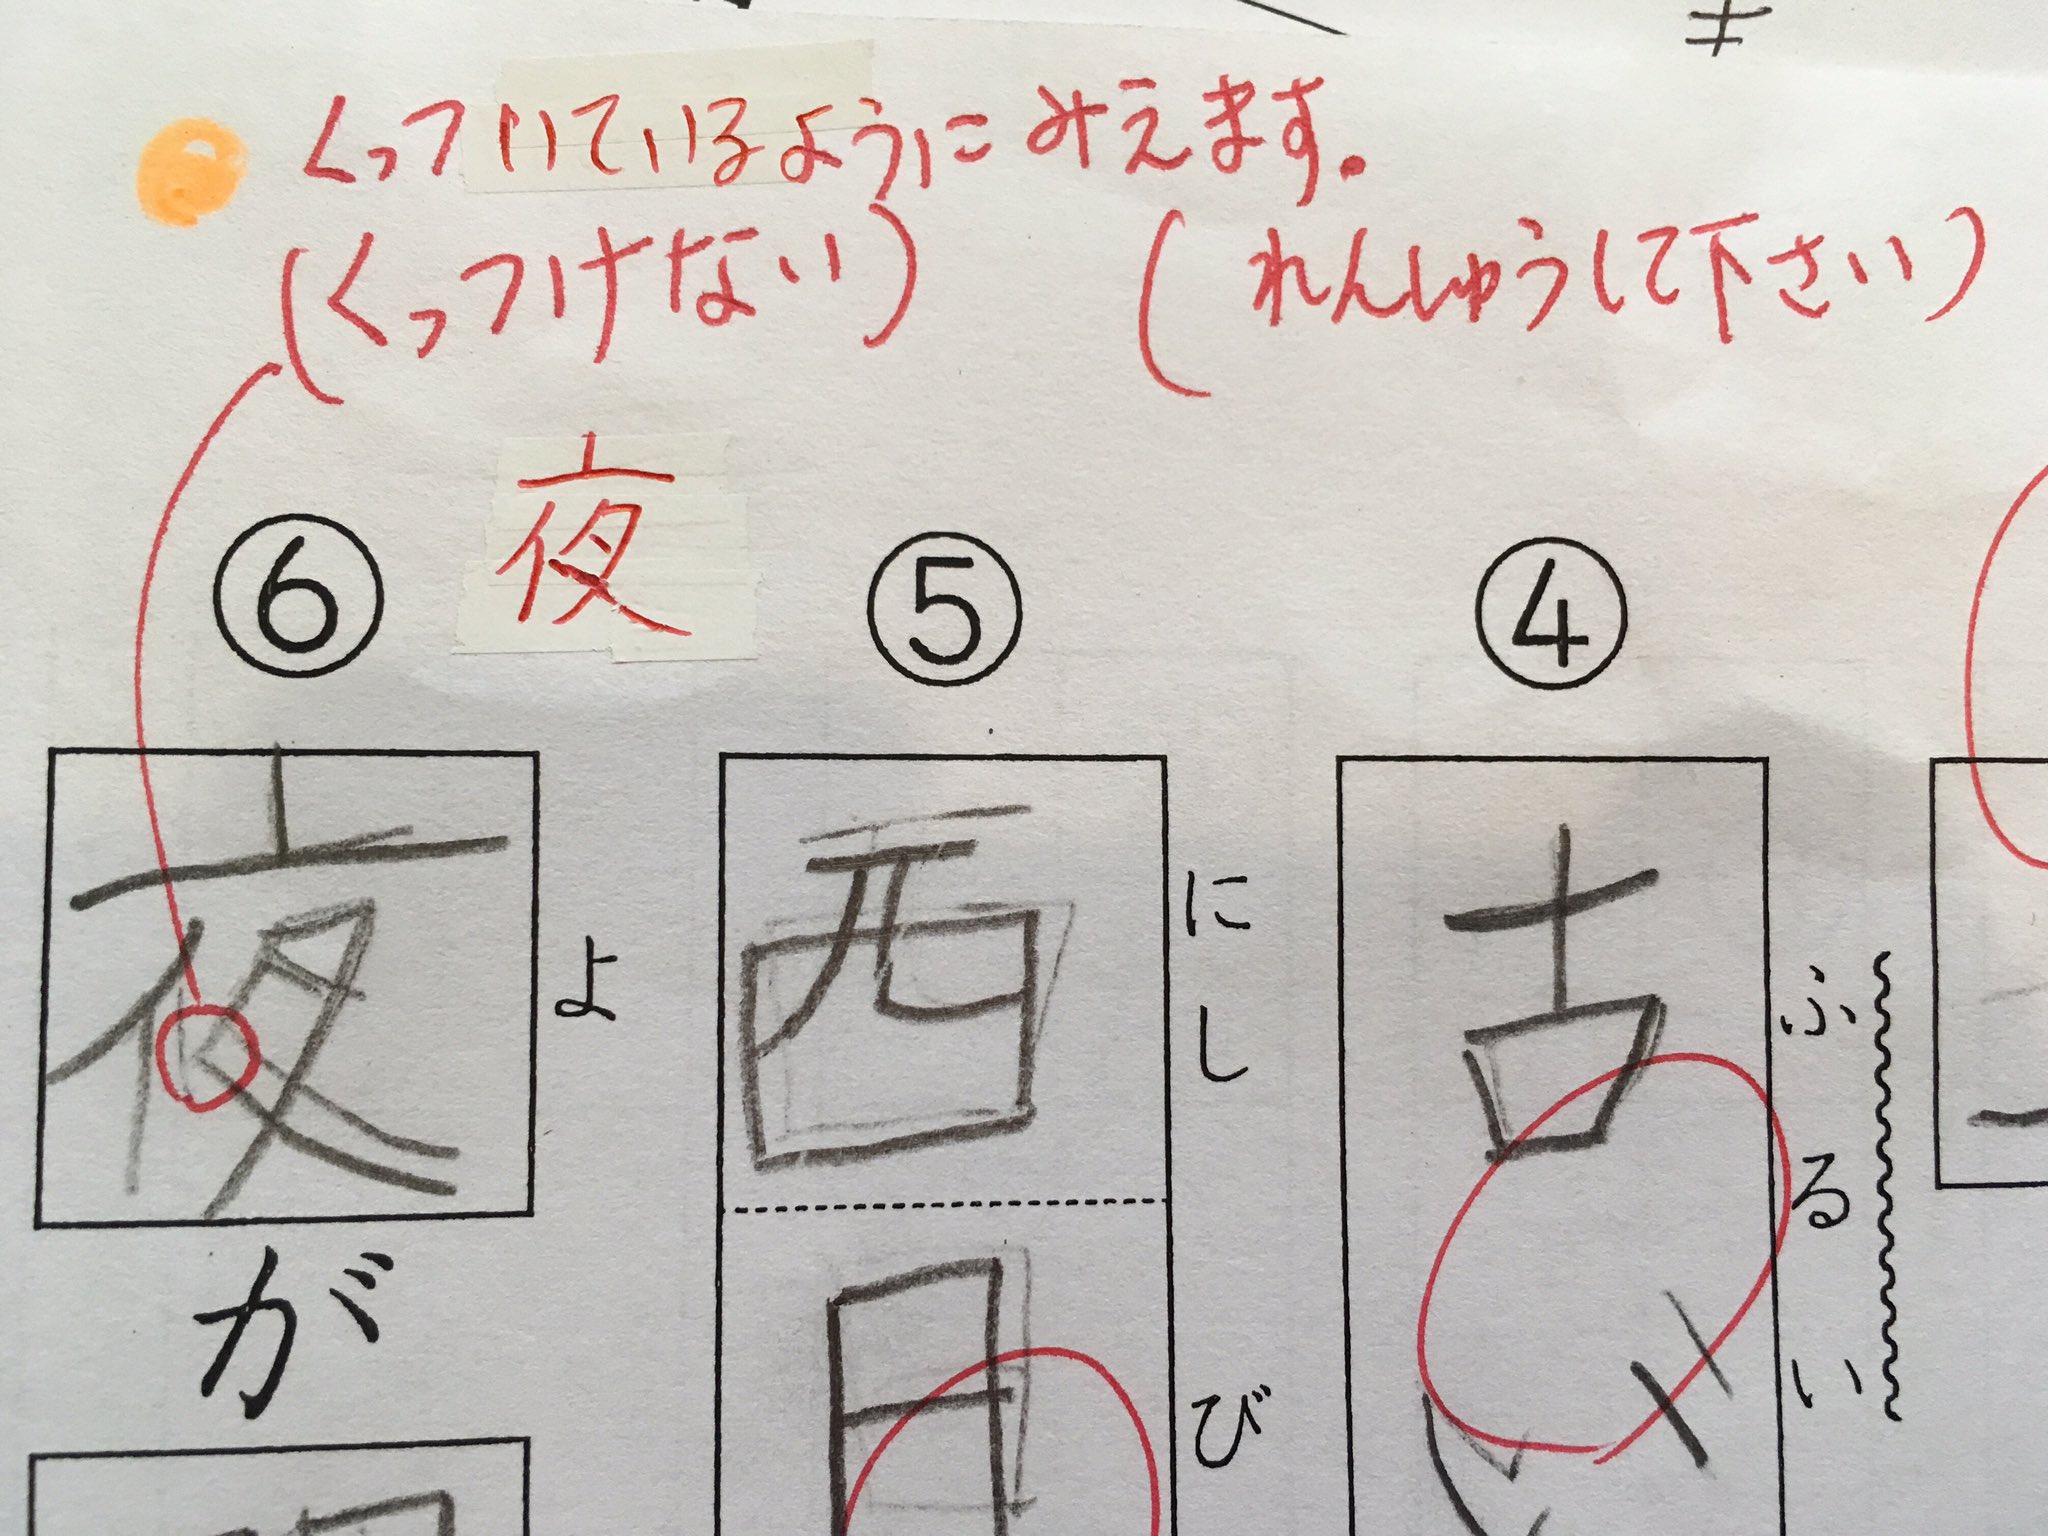 くっついているように みえます。
(くっつけない) (れんしゅうして下さい)
夜
④
古い
ふるい
⑤
西日
にしび
⑥
夜が
よ